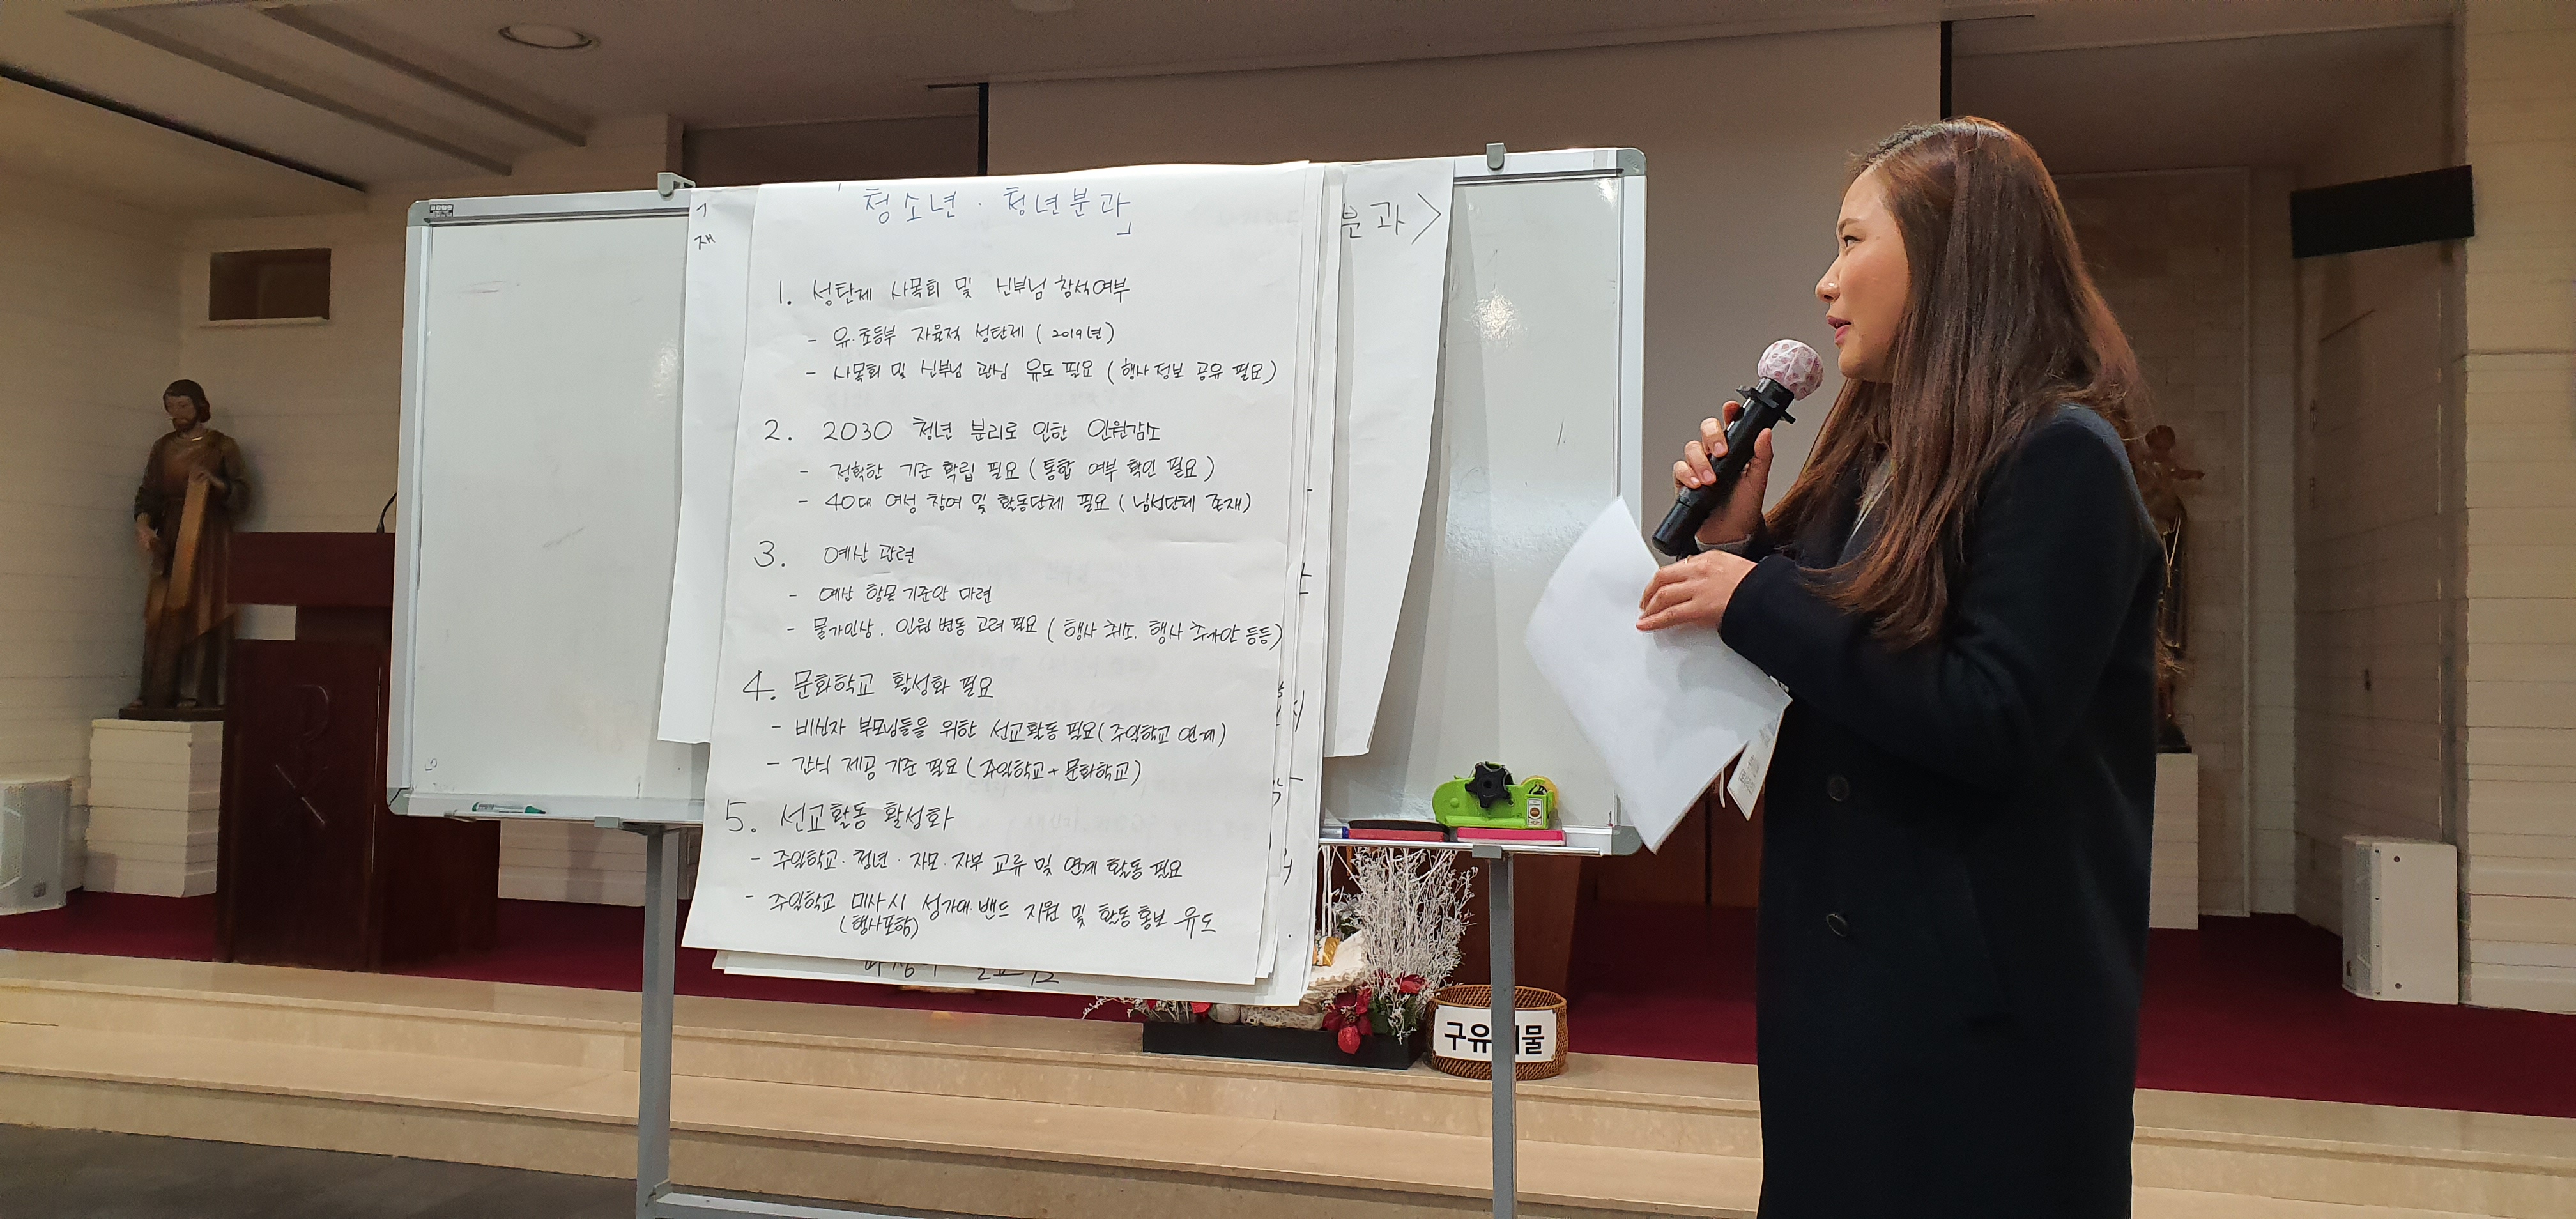 「청소년 · 청년분과」
1. 성탄제 사목회 및 신부님 참석여부
- 유·초등부 자율적 성탄제 (2019년)
- 사목회 및 신부님 관심 유도 필요 (행사 정보 공유 필요)
2. 2030 청년 분리로 인한 인원감소
- 정확한 기준 확립 필요 (통합 여부 확인 필요)
- 40대 여성 참여 및 활동단체 필요 (남성단체 존재)
3. 예산 관련
- 예산 항목 기준안 마련
- 물가인상, 인원 변동 고려 필요 (행사 취소, 행사 추가안 등등)
4. 문화학교 활성화 필요
- 비신자 부모님들을 위한 선교활동 필요 (주일학교 연계)
- 간식 제공 기준 필요 (주일학교 + 문화학교)
5. 선교활동 활성화
- 주일학교·청년·자모·자부 교류 및 연계 활동 필요
- 주일학교 미사 시 성가대·밴드 지원 및 활동 홍보 유도
(행사포함)
분과>
재
구유 물